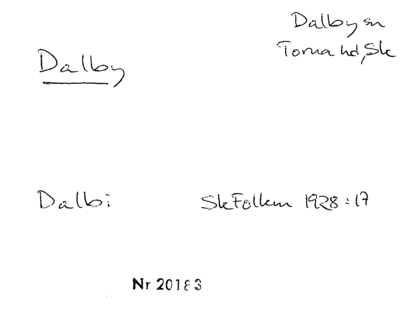 Dalby sn
Torna hd, Sk
Dalby
Dalbi SkFolkm 1928:17
Nr 20183